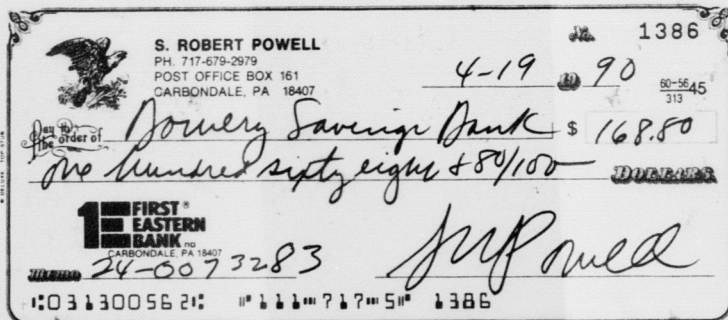 No. 1386
S. ROBERT POWELL
PH. 717-679-2979
POST OFFICE BOX 161
CARBONDALE, PA 18407
4-19 19 90
60-5645
313
Pay to the order of Bowery Savings Bank $ 168.80
One hundred sixty eight & 80/100 DOLLARS
1E FIRST EASTERN BANK na
CARBONDALE, PA 18407
MEMO 24-0073283 SRPowell
⑆031300562⑆ ⑈111⑉717⑉5⑈ 1386